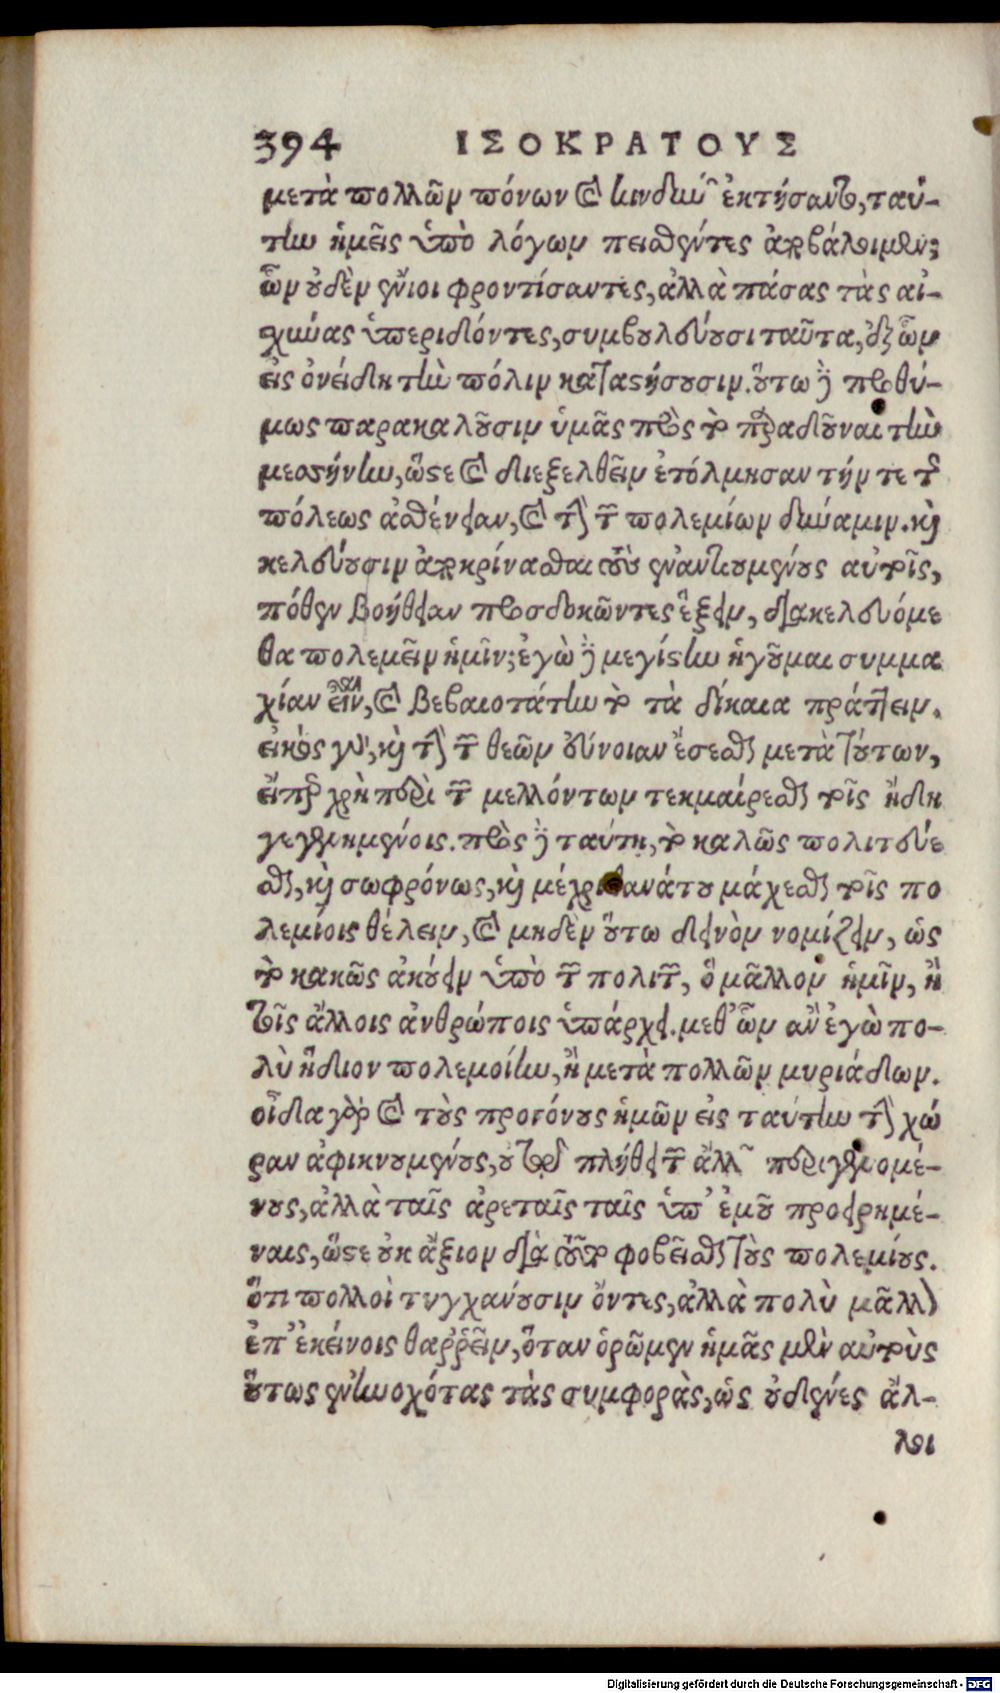 394 ΙΣΟΚΡΑΤΟΥΣ
μετὰ πολλῶν πόνων καὶ κινδύνων ἐκτήσαντο, ταύ-
την ἡμεῖς ὑπὸ λόγων πεισθέντες ἀποβάλοιμεν;
ὧν οὐδὲν ἔνιοι φροντίσαντες, ἀλλὰ πάσας τὰς αἰ-
χύνας ὑπεριδόντες, συμβουλεύουσι ταῦτα, ἐξ ὧν
εἰς ὀνείδη τὴν πόλιν καταστήσουσιν. οὕτω δὲ προθύ-
μως παρακαλοῦσιν ὑμᾶς πρὸς τὸ παραδοῦναι τὴν
μεσήνην, ὥστε καὶ διεξελθεῖν ἐτόλμησαν τήν τε τῆς
πόλεως ἀσθένειαν, καὶ τὴν τῶν πολεμίων δύναμιν. καὶ
κελεύουσιν ἀποκρίνασθαι τοὺς ἐναντιουμένους αὐτοῖς,
πόθεν βοήθειαν προσδοκῶντες ἕξειν, διακελευόμε
θα πολεμεῖν ἡμῖν; ἐγὼ δὲ μεγίστην ἡγοῦμαι συμμα
χίαν εἶναι, καὶ βεβαιοτάτην τὸ τὰ δίκαια πράττειν.
εἰκὸς γὰρ, καὶ τὴν τῶν θεῶν εὔνοιαν ἔσεσθαι μετὰ τούτων,
εἴπερ χρὴ περὶ τῶν μελλόντων τεκμαίρεσθαι τοῖς ἤδη
γεγενημένοις. πρὸς δὲ ταύτῃ, τὸ καλῶς πολιτεύε
σθαι, καὶ σωφρόνως, καὶ μέχρι θανάτου μάχεσθαι τοῖς πο
λεμίοις θέλειν, καὶ μηδὲν οὕτω δεινὸν νομίζειν, ὡς
τὸ κακῶς ἀκούειν ὑπὸ τῶν πολιτῶν, ὃ μᾶλλον ἡμῖν, ἢ
τοῖς ἄλλοις ἀνθρώποις ὑπάρχει. μεθ' ὧν ἂν ἐγὼ πο-
λὺ ἥδιον πολεμοίην, ἢ μετὰ πολλῶν μυριάδων.
οἶδα γὰρ καὶ τοὺς προγόνους ἡμῶν εἰς ταύτην τὴν χώ
ραν ἀφικνουμένους, οὐ τῷ πλήθει τῶν ἄλλων περιγενομέ-
νους, ἀλλὰ ταῖς ἀρεταῖς ταῖς ὑπ' ἐμοῦ προειρημέ-
ναις, ὥστε οὐκ ἄξιον διὰ τοῦτο φοβεῖσθαι τοὺς πολεμίους.
ὅτι πολλοὶ τυγχάνουσιν ὄντες, ἀλλὰ πολὺ μᾶλλον
ἐπ' ἐκείνοις θαῤῥεῖν, ὅταν ὁρῶμεν ἡμᾶς μὲν αὐτοὺς
οὕτως ἐνηνοχότας τὰς συμφορὰς, ὡς οὐδένες ἄλ-
λοι
Digitalisierung gefördert durch die Deutsche Forschungsgemeinschaft - DFG